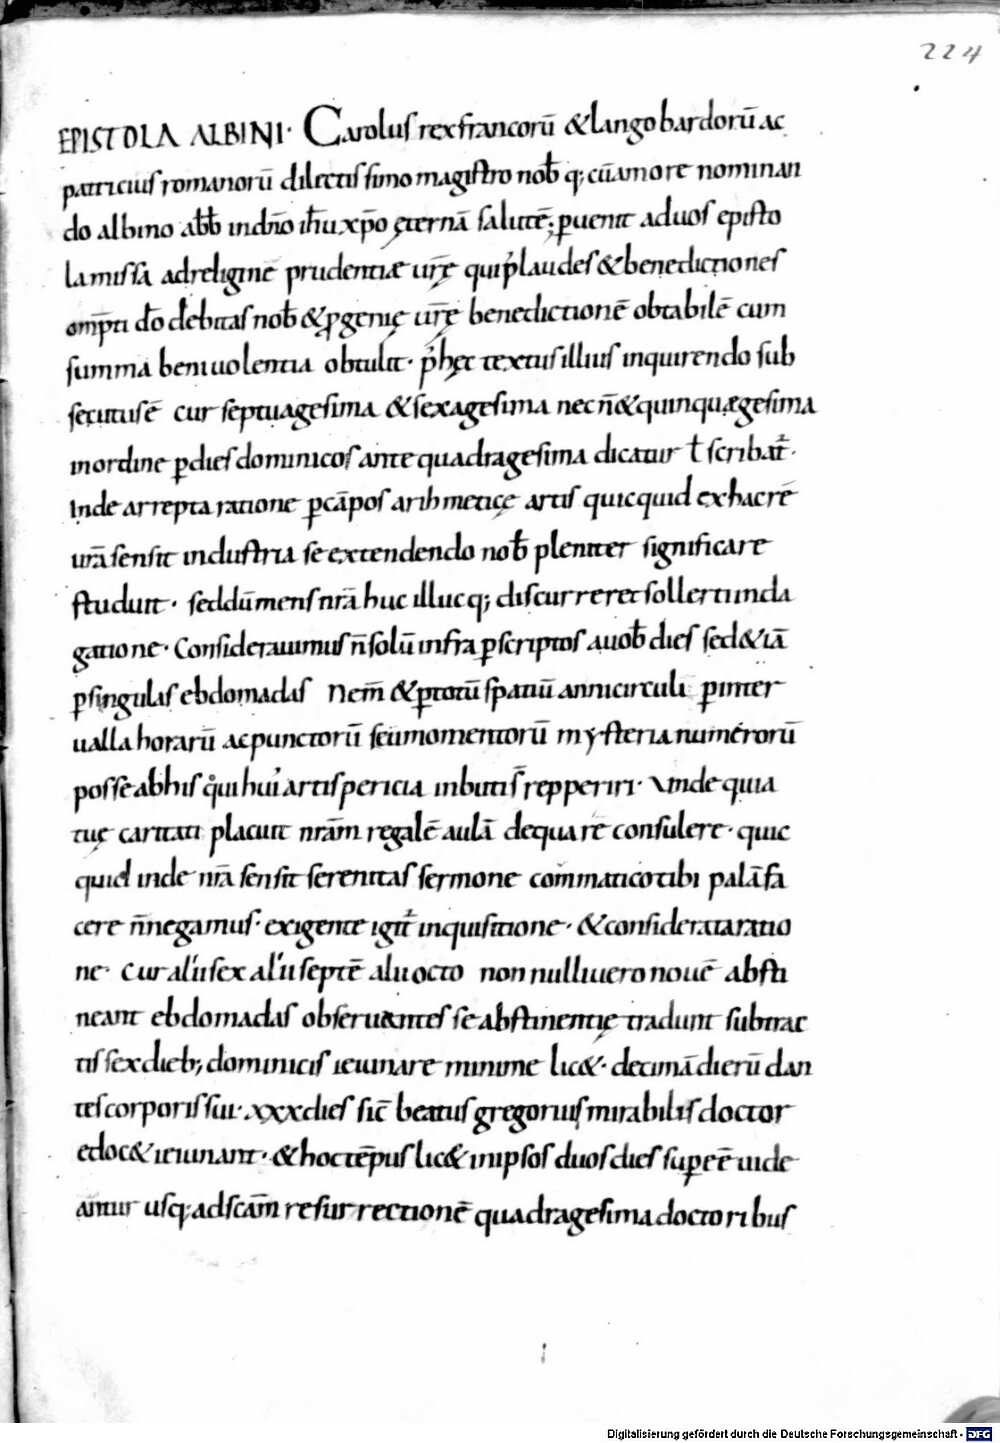 224
EPISTOLA ALBINI· Carolus rex francorū & langobardorū ac
patricius romanorū dilectissimo magistro nob̄ q; cū amore nominan
do albino abb̄ in dn̄o ih̄u xp̄o ęternā salutē; p̲uenit ad uos episto
la missa ad religinē prudentiæ ur̄ę qui p̄laudes & benedictiones
omp̄ti do̅ debitas nob̄ & ꝓgenię ur̄ę benedictionē obtabilē cum
summa beniuolentia obtulit· p̄ hęc textus illius inquirendo sub
secutus ē cur septuagesima & sexagesima nec n̄ & quinquægesima
in ordine p̲ dies dominicos ante quadragesima dicatur ł scribat᷒·
Inde arrepta ratione p̲ cāpos arihmeticę artis quicquid ex hac rē
ur̄a sensit industria se extendendo nob̄ pleniter significare
studuit· sed dū mens nr̄a huc illucq; discurreret sollerti inda
gatione· Considerauimus n̄ solū infra p̲scriptos a uob̄ dies sed & iā
p̲ singulas ebdomadas Nem̄ & p̲ totū spatiū anni circuli p̲ inter
ualla horarū ac punctorū seu momentorū mysteria numerorū
posse ab his qͥ huiꝰ artis pericia inbuti s̄ repperiri· Vnde quia
tuę caritati placuit nrām regalē aulā de qua rē consulere· quic
quid inde nr̄a sensit serenitas sermone commatico tibi palā fa
cere n̄ negamus· exigente igit᷒ inquisitione· & considerata ratio
ne· Cur alii sex alii septē alii octo non nulli uero nouē absti
neant ebdomadas obseruantes se abstinentię tradunt subtrac
tis sex dieb; dominicis ieiunare minime lic&· decimā dierū dan
tes corporis sui· xxx dies sic̄ beatus gregorius mirabilis doctor
edoc& ieiunant· & hoc tēpus lic& in ipsos duos dies sup̲eē uide
antur usq; ad scām resurrectionē quadragesima doctoribus
Digitalisierung gefördert durch die Deutsche Forschungsgemeinschaft - DFG